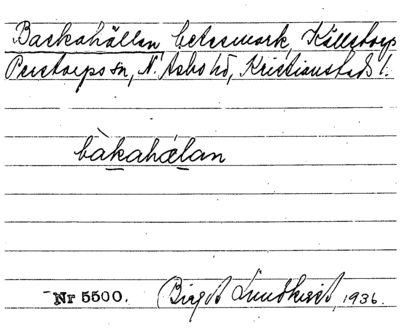 Backahällan, betesmark, Källstorp
Perstorps sn, N. Åsbo hd, Kristianstads l.
bàkahǽlan
Nr 5500. Birgit Lundkvist, 1936.